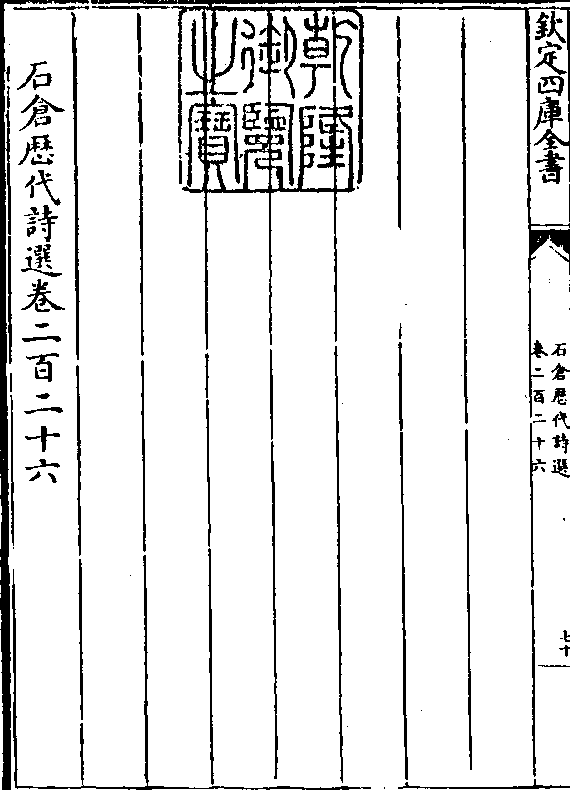 欽定四庫全書
石倉歴代詩選
卷二百二十六
七十
乾隆御覽之寶
石倉歴代詩選卷二百二十六